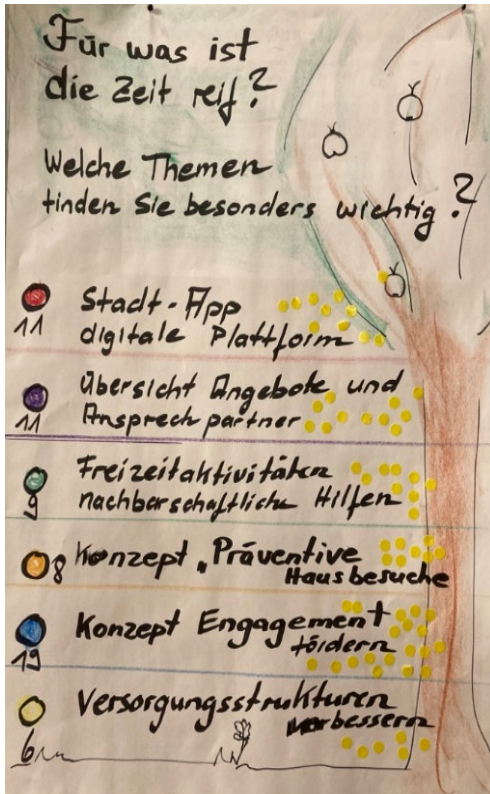 Für was ist
die Zeit reif?
Welche Themen
finden Sie besonders wichtig?
Stadt-App
11 digitale Plattform
Übersicht Angebote und
11 Ansprechpartner
Freizeitaktivitäten
9 nachbarschaftliche Hilfen
8 Konzept „Präventive
Hausbesuche
Konzept Engagement
19 fördern
Versorgungsstrukturen
verbessern
6